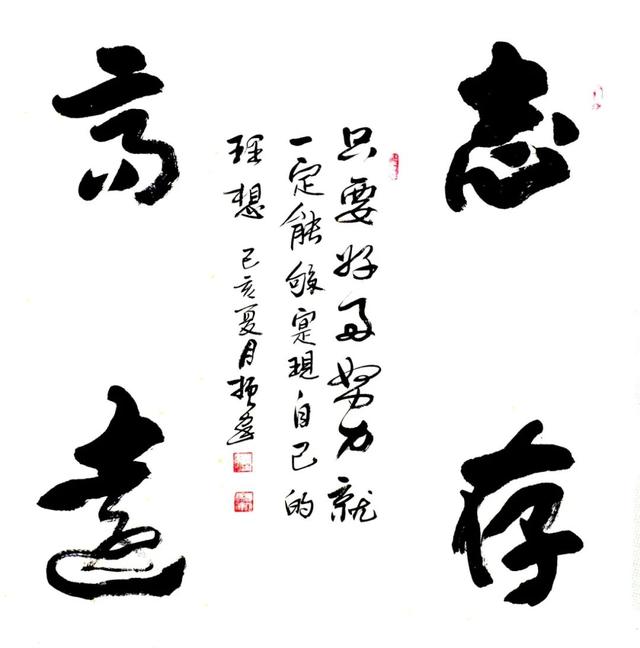 志存
高遠
只要好好努力就
一定能够寔現自己的
理想 己亥夏月